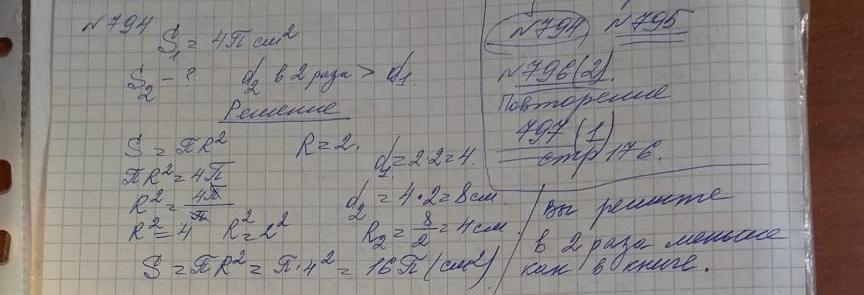 №794
S₁ = 4π см²
S₂ - ? d₂ в 2 раза > d₁.
Решение
S = πR² R = 2.
πR² = 4π d₁ = 2·2 = 4.
R² = 4π/π d₂ = 4·2 = 8 см.
R² = 4 R² = 2² R₂ = 8/2 = 4 см.
S = πR² = π·4² = 16π (см²)
№794, №795
№796(2).
Повторение
797(1)
стр 176.
Вы решите
в 2 раза меньше
как в книге.